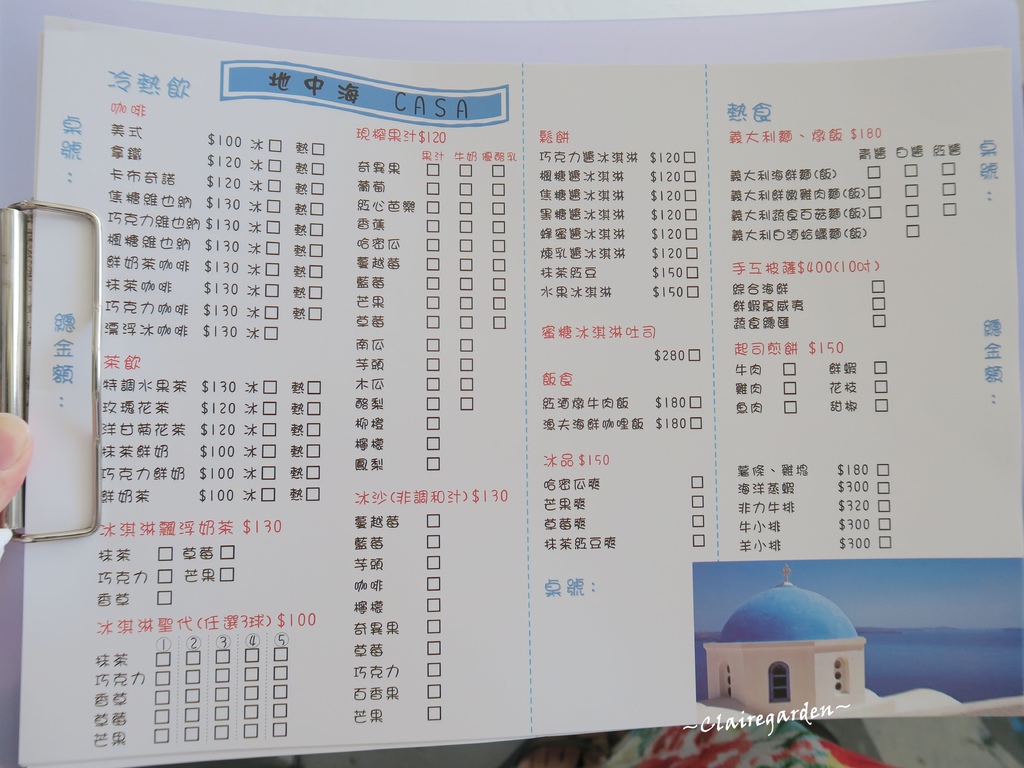 地中海 CASA
桌號：
總金額：
冷熱飲
咖啡
美式 $100 冰□ 熱□
拿鐵 $120 冰□ 熱□
卡布奇諾 $120 冰□ 熱□
焦糖維也納 $130 冰□ 熱□
巧克力維也納 $130 冰□ 熱□
楓糖維也納 $130 冰□ 熱□
鮮奶茶咖啡 $130 冰□ 熱□
抹茶咖啡 $130 冰□ 熱□
巧克力咖啡 $130 冰□ 熱□
漂浮冰咖啡 $130 冰□
茶飲
特調水果茶 $130 冰□ 熱□
玫瑰花茶 $120 冰□ 熱□
洋甘菊花茶 $120 冰□ 熱□
抹茶鮮奶 $100 冰□ 熱□
巧克力鮮奶 $100 冰□ 熱□
鮮奶茶 $100 冰□ 熱□
冰淇淋飄浮奶茶 $130
抹茶 □ 草莓 □
巧克力 □ 芒果 □
香草 □
冰淇淋聖代(任選3球) $100
① ② ③ ④ ⑤
抹茶 □ □ □ □ □
巧克力 □ □ □ □ □
香草 □ □ □ □ □
草莓 □ □ □ □ □
芒果 □ □ □ □ □
現榨果汁 $120
果汁 牛奶 優酪乳
奇異果 □ □ □
葡萄 □ □ □
紅心芭樂 □ □ □
香蕉 □ □ □
哈密瓜 □ □ □
蔓越莓 □ □ □
藍莓 □ □ □
芒果 □ □ □
草莓 □ □ □
南瓜 □ □
芋頭 □ □
木瓜 □ □
酪梨 □ □
柳橙 □
檸檬 □
鳳梨 □
冰沙(非調和汁) $130
蔓越莓 □
藍莓 □
芋頭 □
咖啡 □
檸檬 □
奇異果 □
草莓 □
巧克力 □
百香果 □
芒果 □
鬆餅
巧克力醬冰淇淋 $120 □
楓糖醬冰淇淋 $120 □
焦糖醬冰淇淋 $120 □
黑糖醬冰淇淋 $120 □
蜂蜜醬冰淇淋 $120 □
煉乳醬冰淇淋 $120 □
抹茶紅豆 $150 □
水果冰淇淋 $150 □
蜜糖冰淇淋吐司
$280 □
飯食
紅酒燉牛肉飯 $180 □
漁夫海鮮咖哩飯 $180 □
冰品 $150
哈密瓜爽 □
芒果爽 □
草莓爽 □
抹茶紅豆爽 □
桌號：
熱食
義大利麵、燉飯 $180
青醬 白醬 紅醬
義大利海鮮麵(飯) □ □ □
義大利鮮嫩雞肉麵(飯) □ □ □
義大利蔬食百菇麵(飯) □ □ □
義大利白酒蛤蠣麵(飯) □
手工披薩 $400(10吋)
綜合海鮮 □
鮮蝦夏威夷 □
蔬食總匯 □
起司煎餅 $150
牛肉 □ 鮮蝦 □
雞肉 □ 花枝 □
魚肉 □ 甜椒 □
薯條、雞塊 $180 □
海洋蒸蝦 $300 □
菲力牛排 $320 □
牛小排 $300 □
羊小排 $300 □
桌號：
總金額：
~Clairegarden~